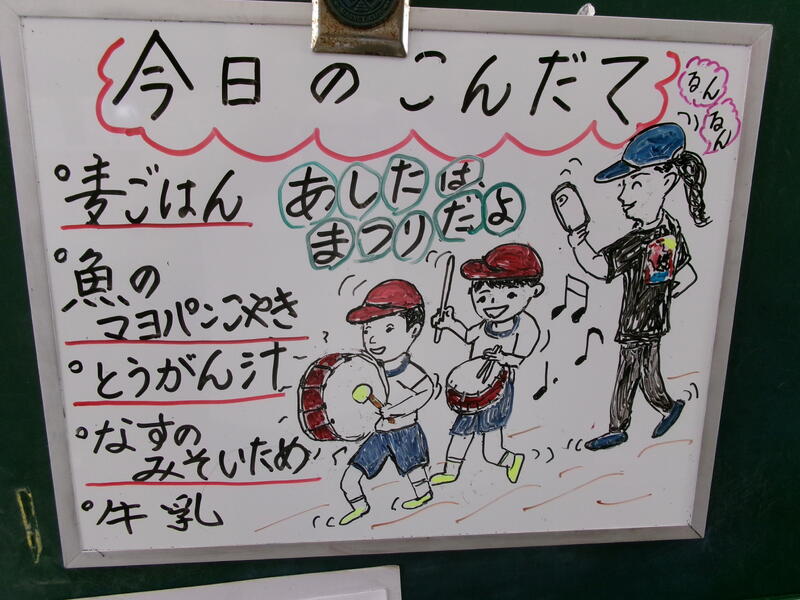 今日のこんだて
るん
るん
。麦ごはん
。魚の
マヨパンこやき
。とうがん汁
。なすの
みそいため
。牛乳
あしたは、
まつりだよ